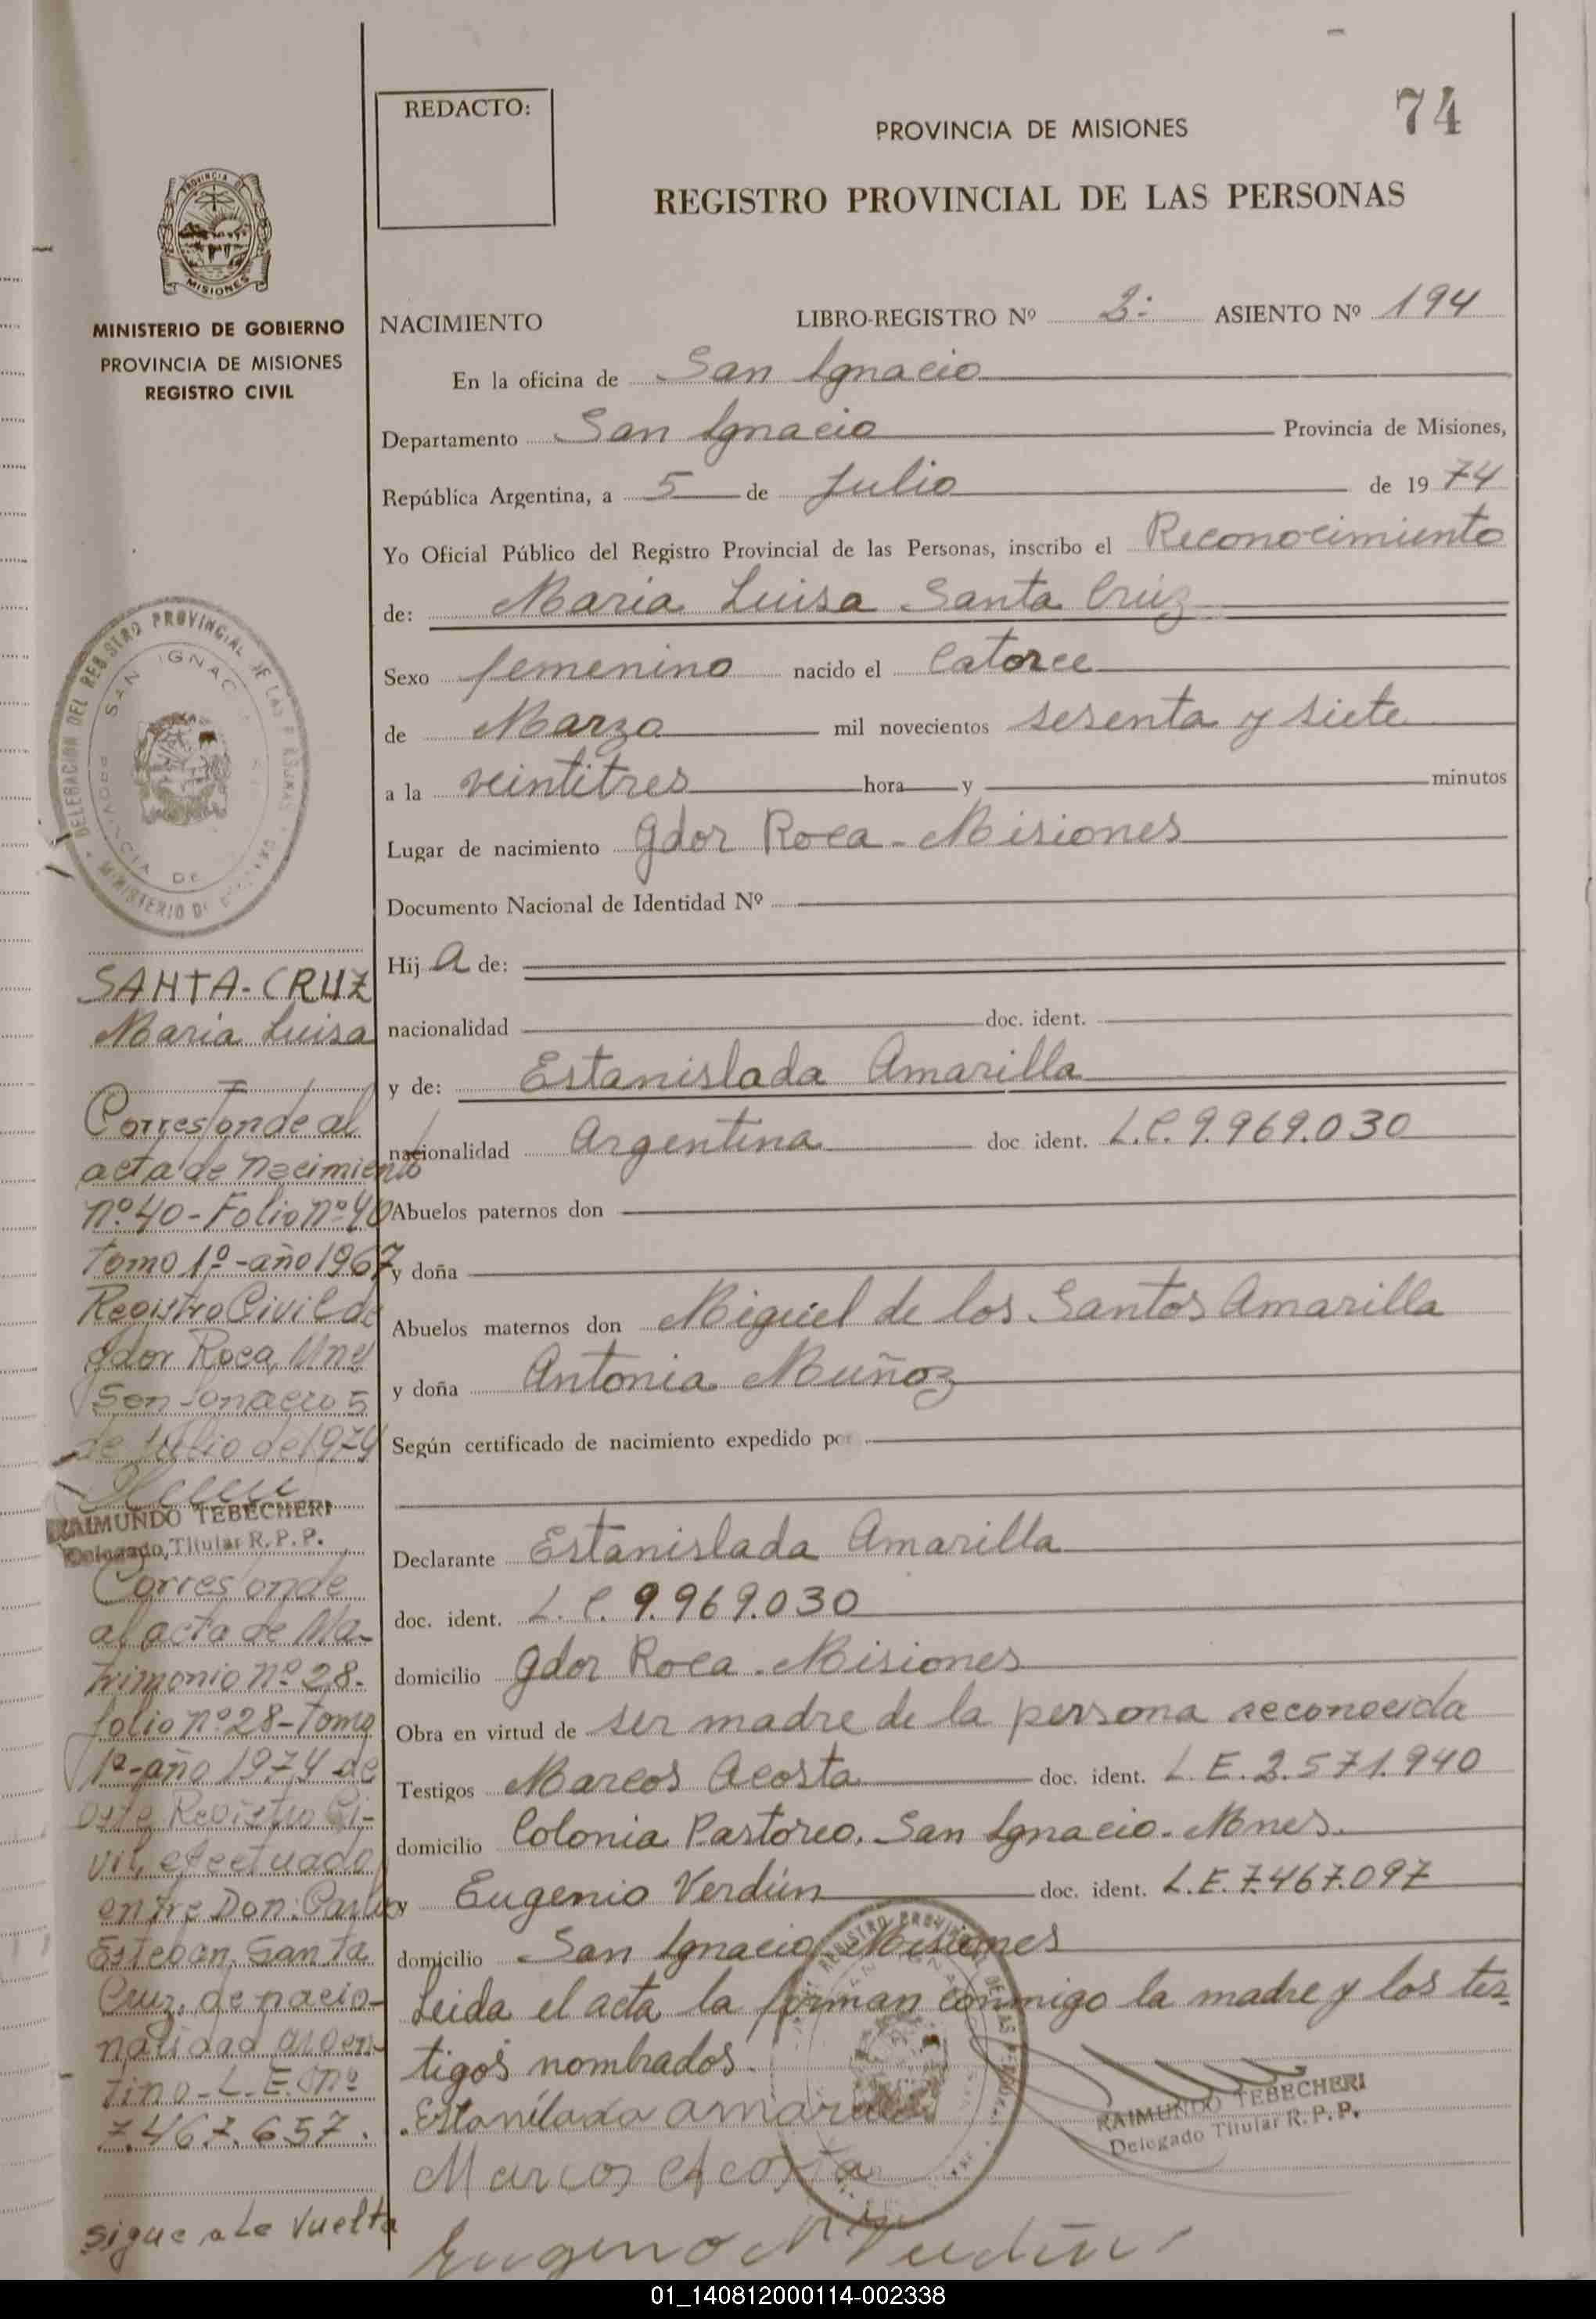 REDACTO:
PROVINCIA DE MISIONES
74
REGISTRO PROVINCIAL DE LAS PERSONAS
PROVINCIA DE
MISIONES
MINISTERIO DE GOBIERNO
PROVINCIA DE MISIONES
REGISTRO CIVIL
NACIMIENTO LIBRO-REGISTRO Nº 2: ASIENTO Nº 194
En la oficina de San Ignacio
Departamento San Ignacio Provincia de Misiones,
República Argentina, a 5 de Julio de 1974
Yo Oficial Público del Registro Provincial de las Personas, inscribo el Reconocimiento
de: Maria Luisa Santa Cruz
Sexo femenino nacido el Catorce
de Marzo mil novecientos sesenta y siete
a la veintitres hora y minutos
Lugar de nacimiento Gdor Roca - Misiones
Documento Nacional de Identidad Nº
Hij a de:
nacionalidad doc. ident.
y de: Estanislada Amarilla
nacionalidad Argentina doc ident. L.C. 9.969.030
Abuelos paternos don
y doña
Abuelos maternos don Miguel de los Santos Amarilla
y doña Antonia Muñoz
Según certificado de nacimiento expedido por
Declarante Estanislada Amarilla
doc. ident. L.C. 9.969.030
domicilio Gdor Roca - Misiones
Obra en virtud de ser madre de la persona reconocida
Testigos Marcos Acosta doc. ident. L.E. 2.571.940
domicilio Colonia Pastoreo. San Ignacio. Mnes.
y Eugenio Verdún doc. ident. L.E. 7.467.097
domicilio San Ignacio, Misiones
Leida el acta la firman conmigo la madre y los tes-
tigos nombrados.
Estanilada amarilla
Marcos Acosta
Eugenio Verdún
RAIMUNDO TEBECHERI
Delegado Titular R. P. P.
DELEGACION DEL REGISTRO PROVINCIAL DE LAS PERSONAS
SAN IGNACIO
PROVINCIA DE
MINISTERIO DE GOBIERNO
SANTA-CRUZ
Maria Luisa
Corresponde al
acta de Nacimiento
nº 40 - Folio nº 40
Tomo 1º - año 1967
Registro Civil de
Gdor Roca, Mnes
San Ignacio 5
de Julio de 1974
RAIMUNDO TEBECHERI
Delegado Titular R. P. P.
Corresponde
al acta de Ma-
trimonio Nº 28-
folio nº 28 - Tomo
1º - año 1974 de
este Registro Ci-
vil, efectuado
entre Don: Carlos
Esteban Santa
Cruz, de nacio-
nalidad argen-
tino - L.E. nº
7.467.657.
sigue a la vuelta
01_140812000114-002338